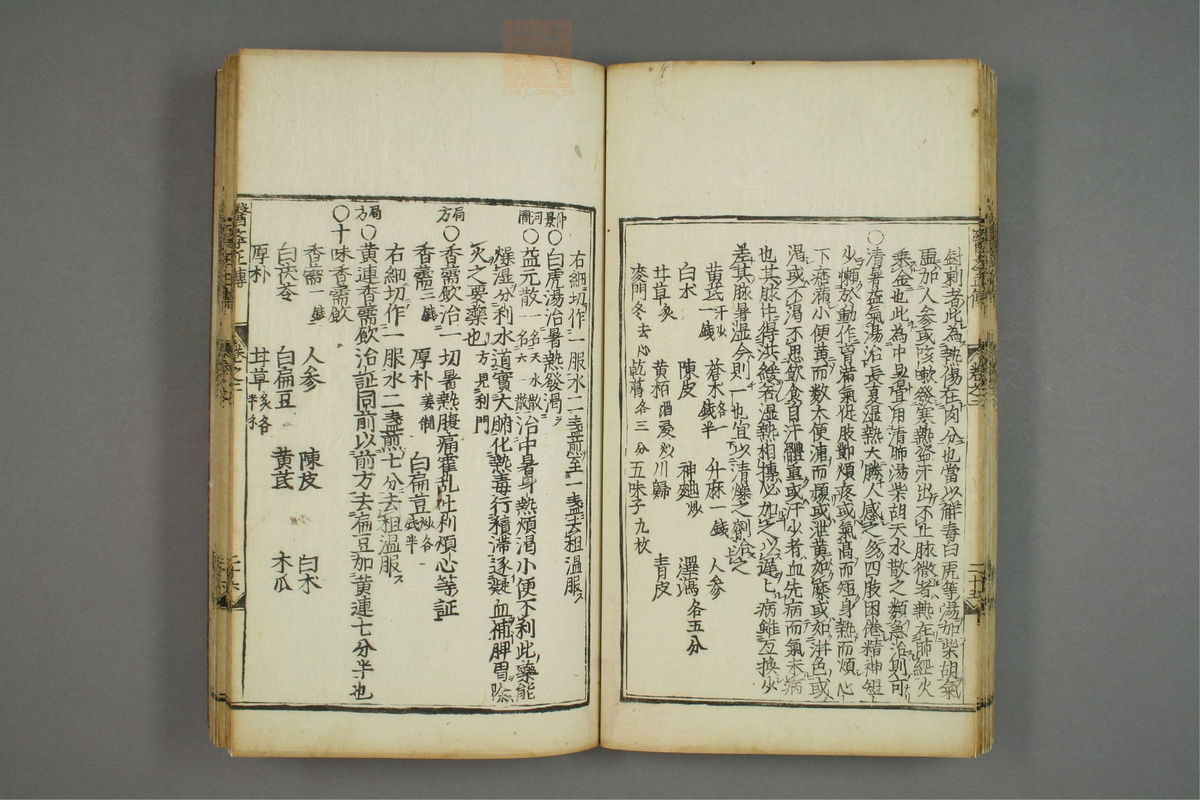 針刺者此為熱傷在肉分也當以解毒白虎等湯加柴胡氣
虛加人參或咳嗽發寒熱盜汗出不止脉微者熱在肺經火
乘金也此為中暑宜用清肺湯柴胡天水散之類急治則可
○清暑益氣湯治長夏濕熱大勝人感之多四肢困倦精神短
少懶於動作胃滿氣促肢節煩疼或氣高而短身熱而煩心
下痞滿小便黃而數大便溏而頻或泄黃如糜或如泔色或
渴或不渴不思飲食自汗體重或汗少者血先病而氣未病
也其脉中得洪緩若濕熱相搏必加之以遲遲病雖互換少
差其脉暑濕令則一也宜以清燥之劑治之
黃芪汗炒一錢 蒼朮各一錢半 升麻一錢 人參
白朮 陳皮 神麯炒 澤瀉各五分
甘草炙 黃栢酒炒 川歸 青皮
麥門冬去心 乾葛各三分 五味子九枚
右細切作一服水二盞煎至一盞去租溫服
仲景○白虎湯治暑熱發渴
河間○益元散一名天水散一名六一散治中暑身熱煩渴小便不利此藥能
燥濕分利水道實大腑化熱毒行積滯逐凝血補脾胃除
灾之要藥也方見利門
局方○香薷飲治一切暑熱腹痛霍乱吐利煩心等証
香薷二錢 厚朴姜制 白扁荳炒各錢半
右細切作一服水二盞煎七分去租溫服
局方○黃連香薷飲治証同前以前方去扁豆加黃連七分半也
○十味香薷飲
香薷一錢 人參 陳皮 白朮
白茯苓 白扁豆 黃芪 木瓜
厚朴 甘草炙各半
醫學正傳
卷之二
二十五
醫學正傳
卷之二
二十六